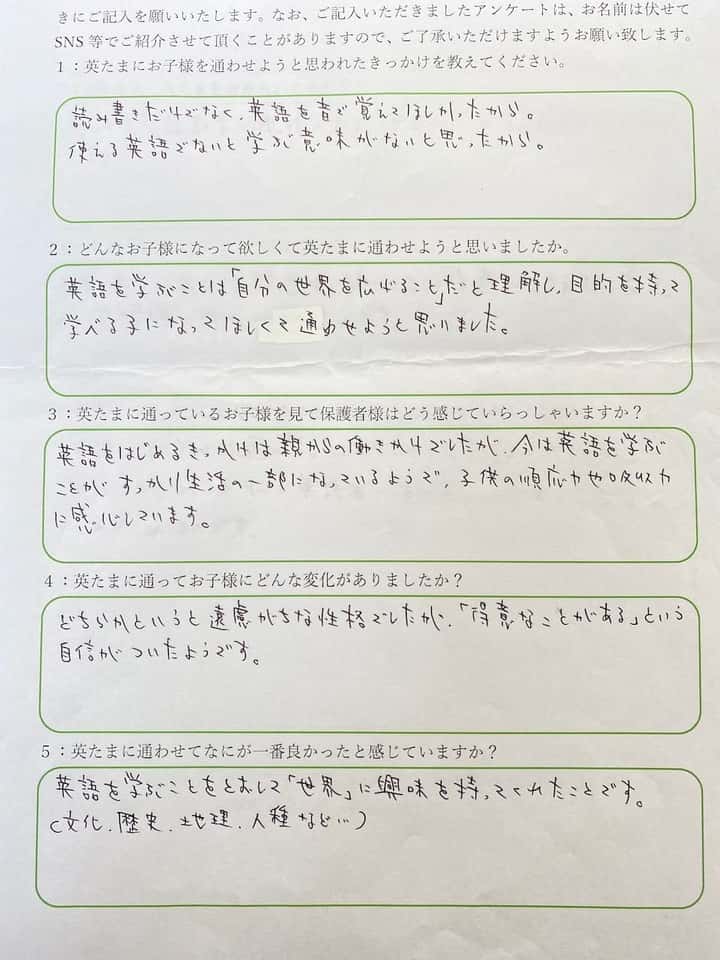 きにご記入を願いいたします。なお、ご記入いただきましたアンケートは、お名前は伏せて
SNS 等でご紹介させて頂くことがありますので、ご了承いただけますようお願い致します。
１：英たまにお子様を通わせようと思われたきっかけを教えてください。
読み書きだけでなく、英語を音で覚えてほしかったから。
使える英語でないと学ぶ意味がないと思ったから。
２：どんなお子様になって欲しくて英たまに通わせようと思いましたか。
英語を学ぶことは「自分の世界を広げること」だと理解し、目的を持って
学べる子になってほしくて通わせようと思いました。
３：英たまに通っているお子様を見て保護者様はどう感じていらっしゃいますか？
英語をはじめるきっかけは親からの働きかけでしたが、今は英語を学ぶ
ことがすっかり生活の一部になっているようで、子供の順応力や吸収力
に感心しています。
４：英たまに通ってお子様にどんな変化がありましたか？
どちらかというと遠慮がちな性格でしたが、「得意なことがある」という
自信がついたようです。
５：英たまに通わせてなにが一番良かったと感じていますか？
英語を学ぶことをとおして「世界」に興味を持ってくれたことです。
(文化、歴史、地理、人種など…)